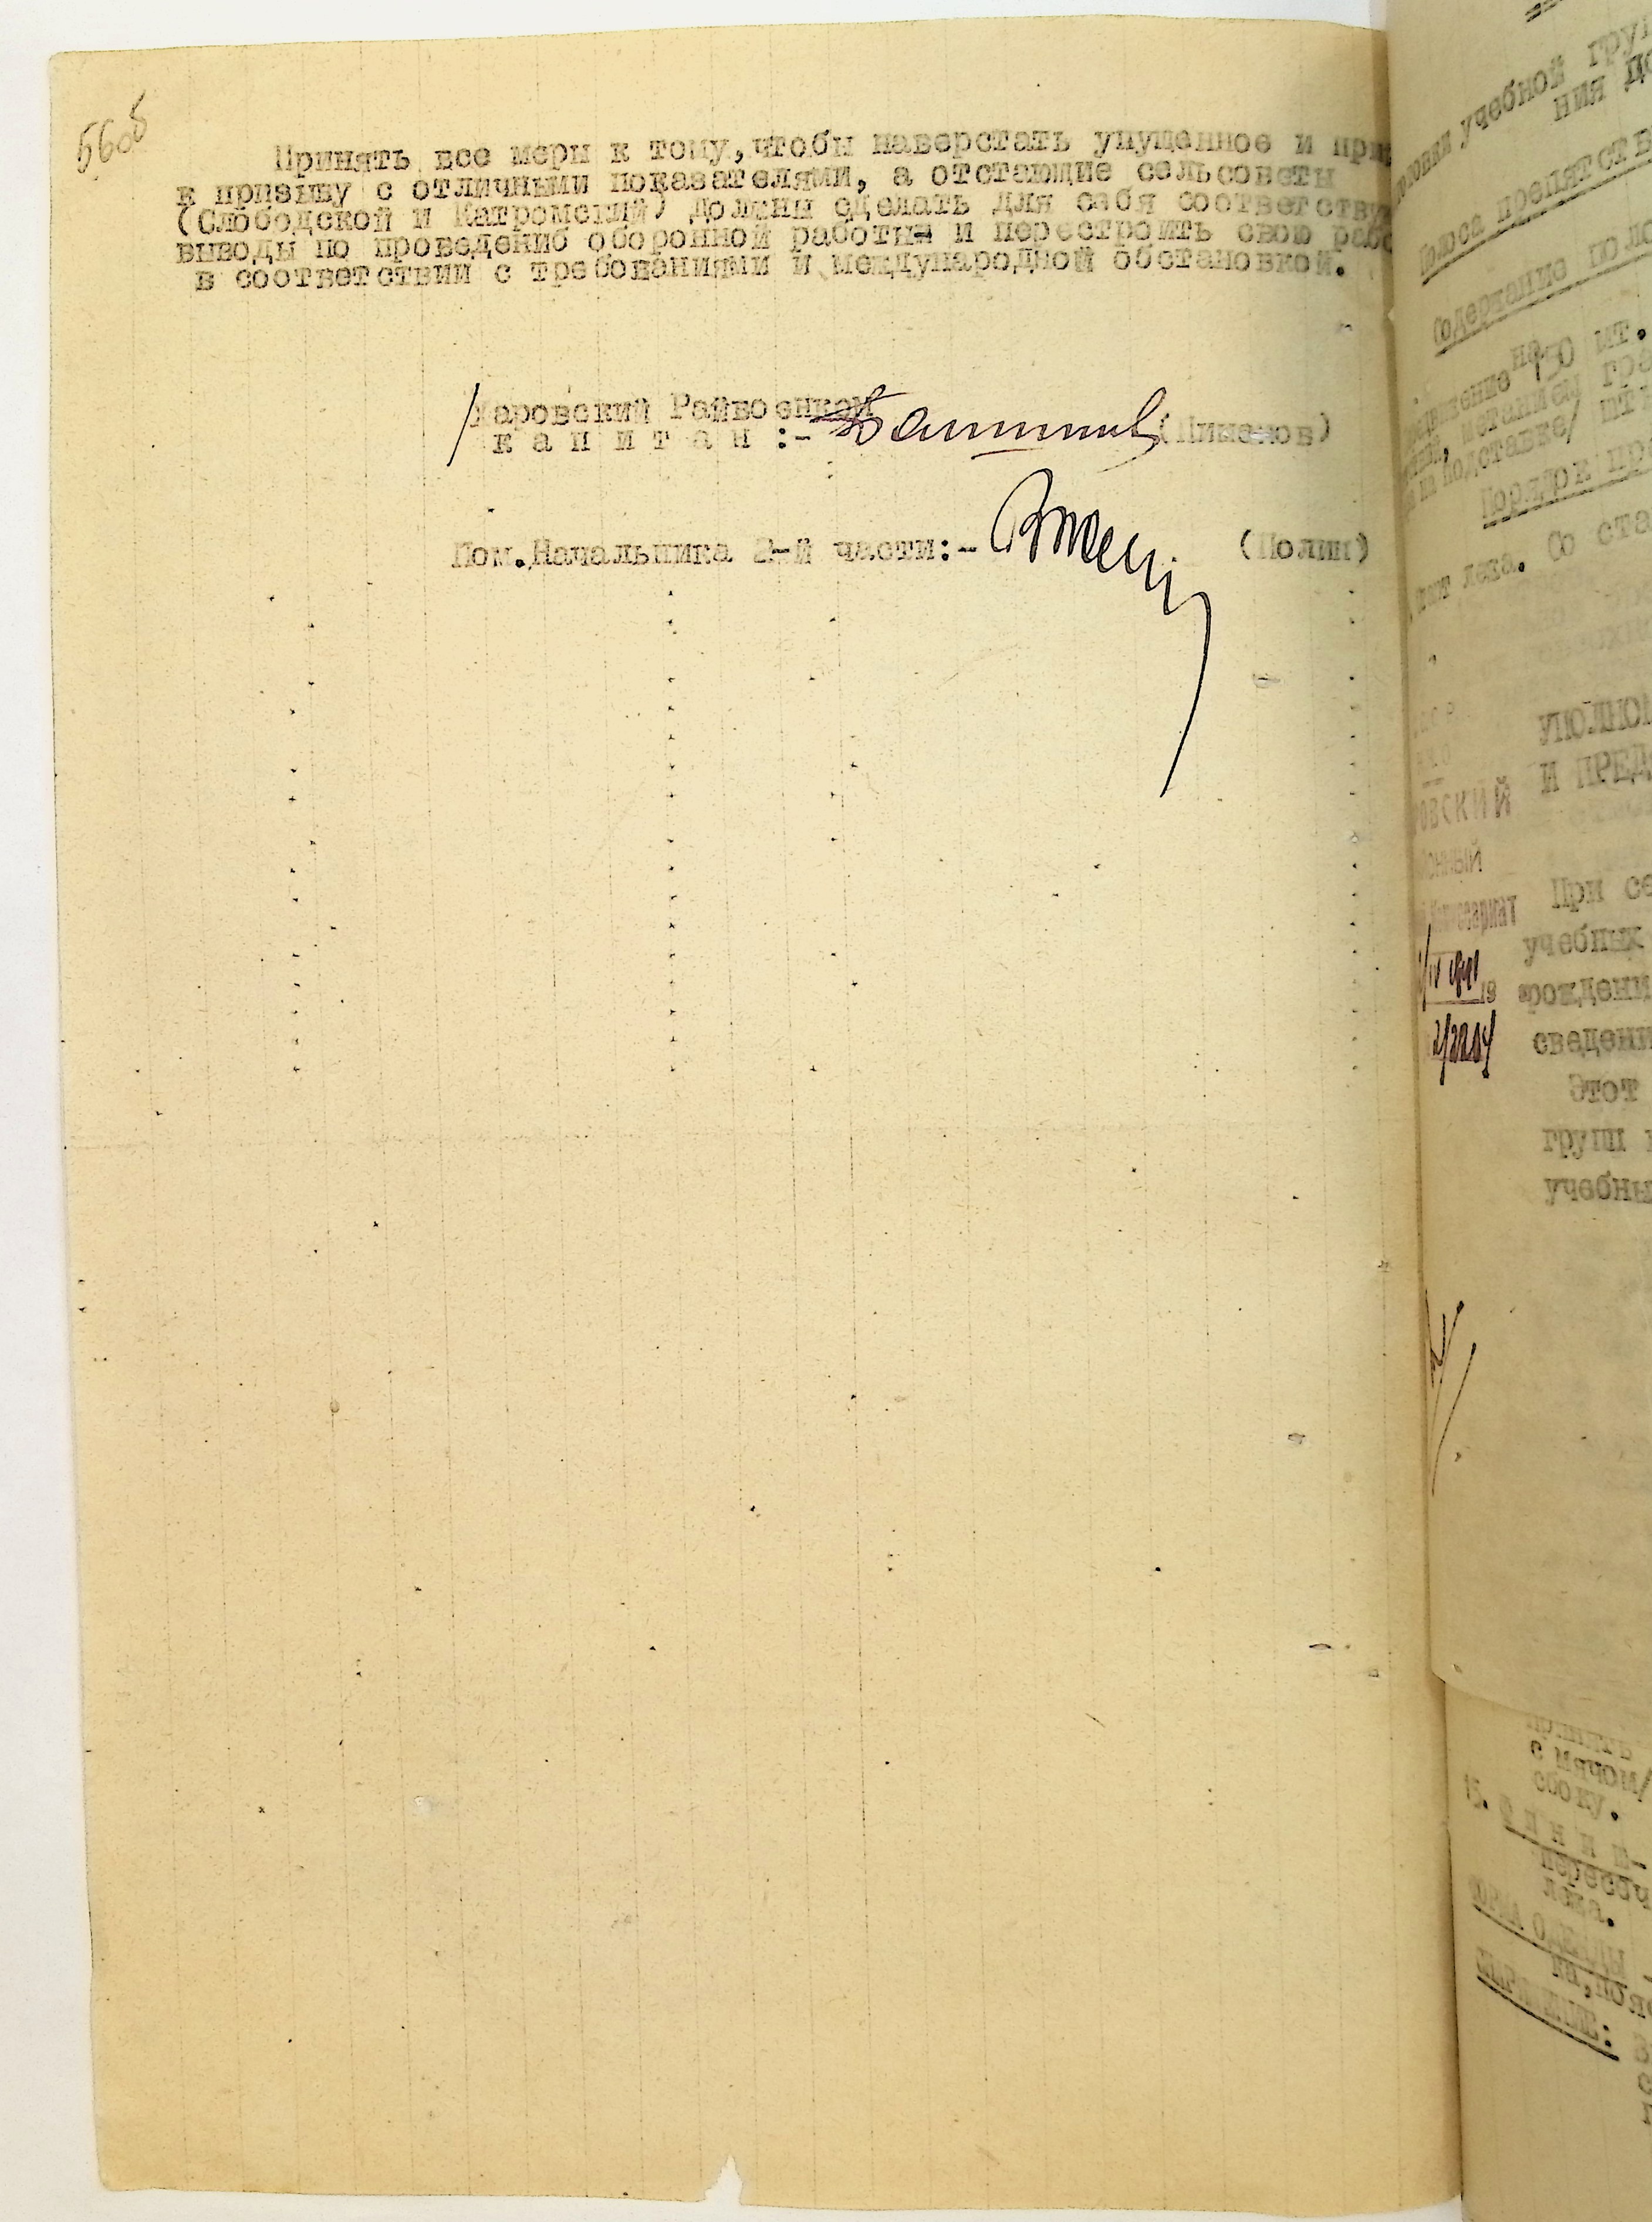 56об
Принять все меры к тому,чтобы наверстать упущенное и при
к призыву с отличными показателями, а отстающие сельсоветы
(Слободской и Катромский) должны сделать для себя соответству
выводы по проведениб оборонной работы и перестроить свою рабо
в соответствии с требованиями и международной обстановкой.
/Харовский Райвоенком
к а п и т а н :- (Пименов)
Пом.Начальника 2-й части:- (Полин)
учебной гру
ния
препятств
Содержание поло
на подставке/
Порядок пр
лежа. Со ста
УПОЛНОМ
И ПРЕД
ОВСКИЙ
При се
учебных
рождени
сведени
Этот
групп
учебны
с мячом/
сбоку.
лежа.